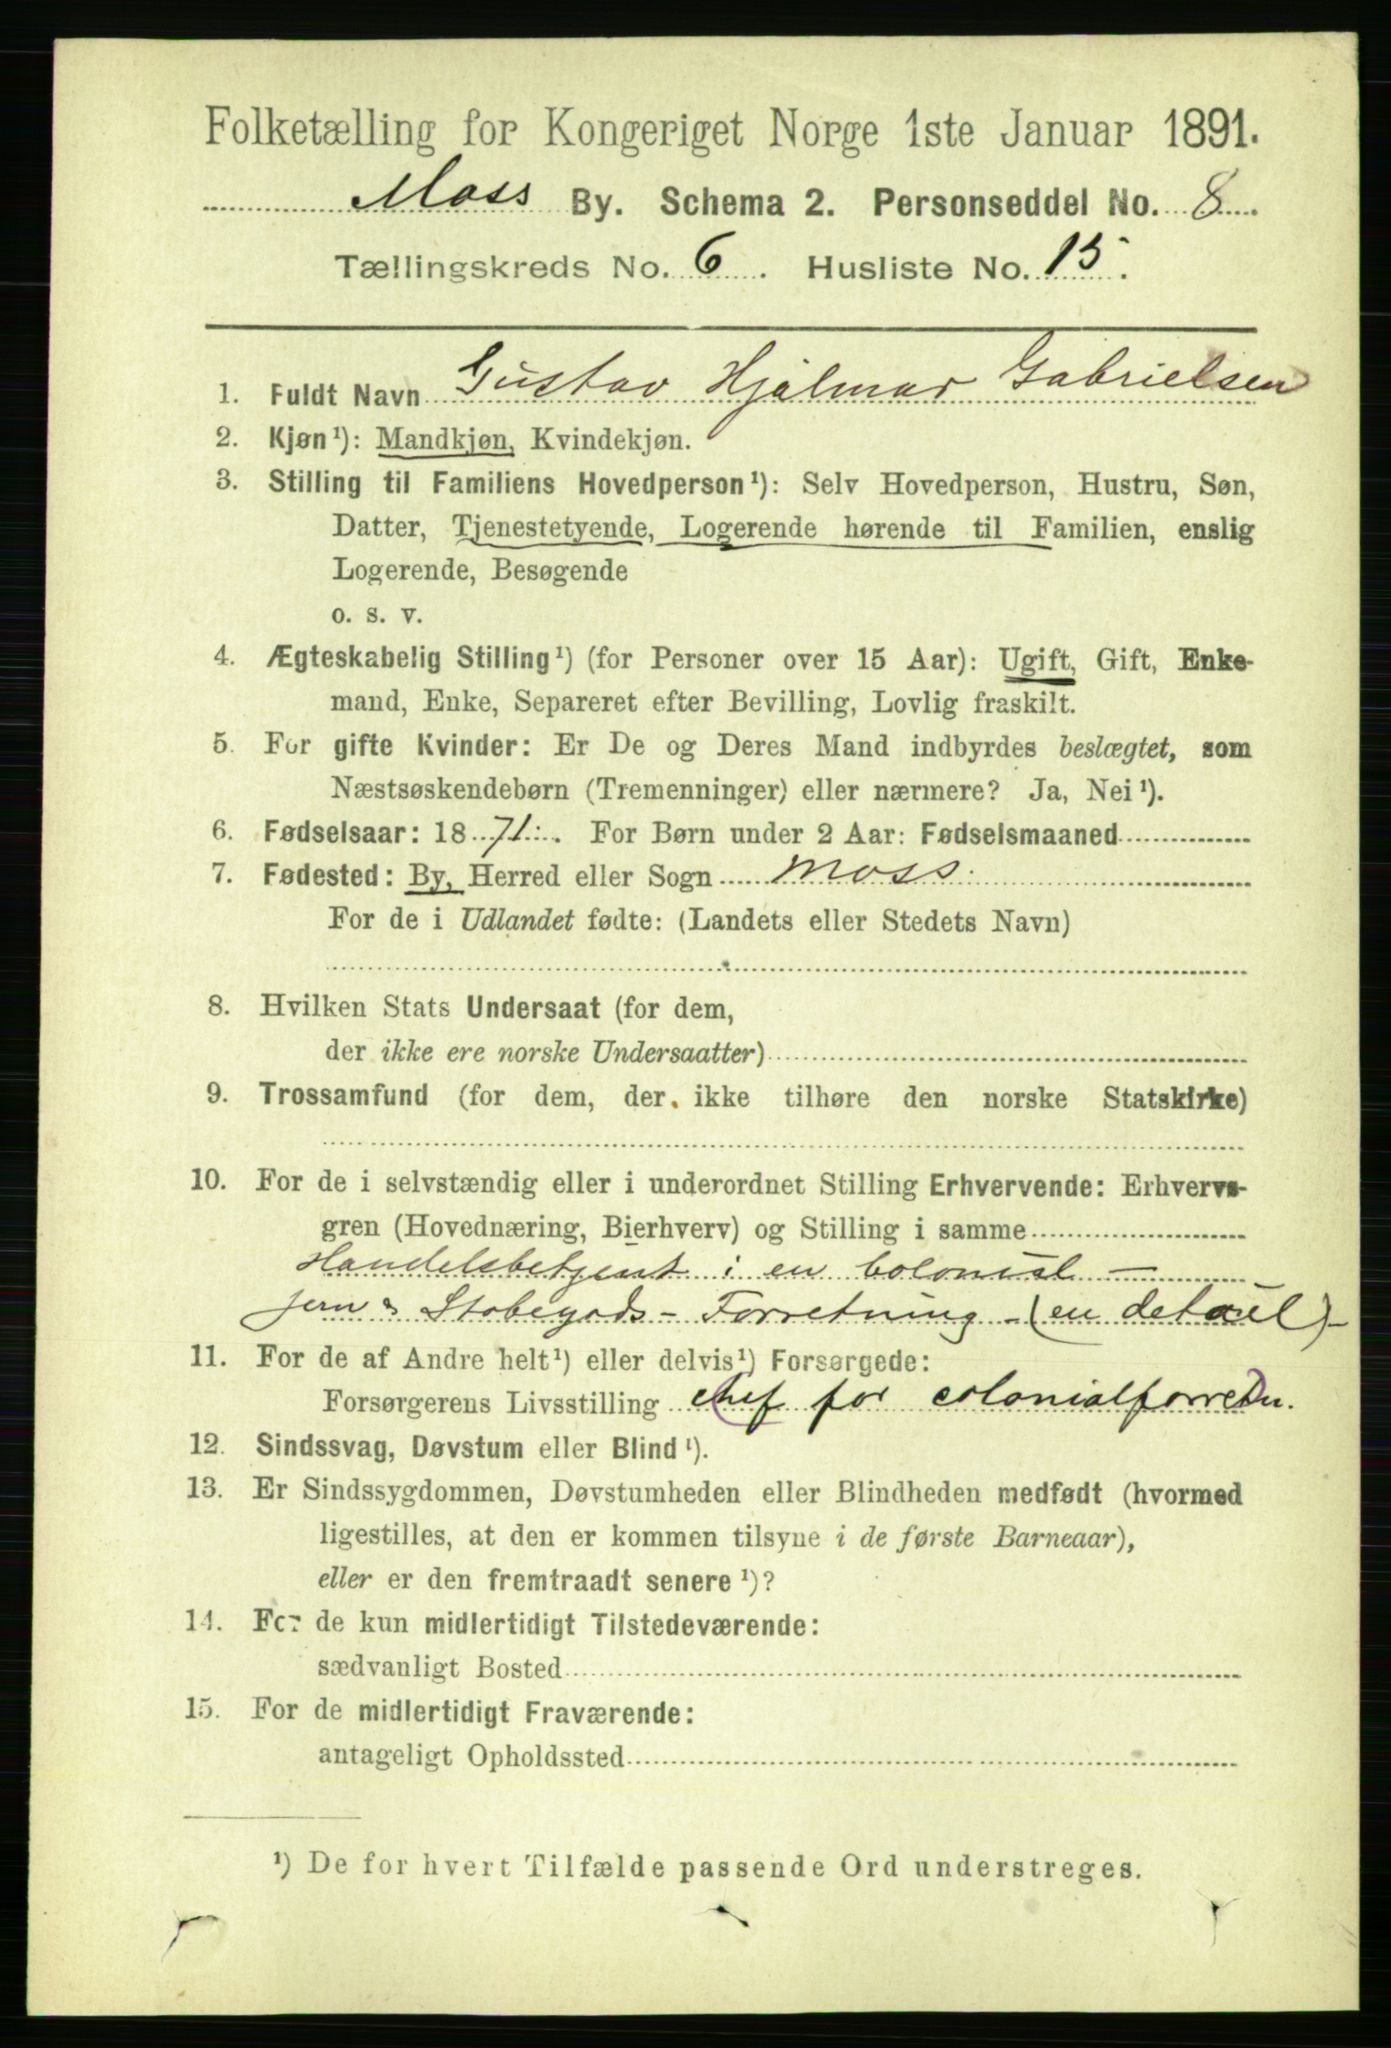 Folketælling for Kongeriget Norge 1ste Januar 1891.
Moss By. Schema 2. Personseddel No. 8.
Tællingskreds No. 6. Husliste No. 15.
1. Fuldt Navn Gustav Hjalmar Gabrielsen
2. Kjøn¹): Mandkjøn, Kvindekjøn.
3. Stilling til Familiens Hovedperson¹): Selv Hovedperson, Hustru, Søn,
Datter, Tjenestetyende, Logerende hørende til Familien, enslig
Logerende, Besøgende
o. s. v.
4. Ægteskabelig Stilling¹) (for Personer over 15 Aar): Ugift, Gift, Enke-
mand, Enke, Separeret efter Bevilling, Lovlig fraskilt.
5. For gifte Kvinder: Er De og Deres Mand indbyrdes beslægtet, som
Næstsøskendebørn (Tremenninger) eller nærmere? Ja, Nei¹).
6. Fødselsaar: 1871. For Børn under 2 Aar: Fødselsmaaned
7. Fødested: By, Herred eller Sogn Moss.
For de i Udlandet fødte: (Landets eller Stedets Navn)
8. Hvilken Stats Undersaat (for dem,
der ikke ere norske Undersaatter)
9. Trossamfund (for dem, der ikke tilhøre den norske Statskirke)
10. For de i selvstændig eller i underordnet Stilling Erhvervende: Erhvervs-
gren (Hovednæring, Bierhverv) og Stilling i samme
Handelsbetjent i en Colonial –
Jern & Stobegods – Forretning – (en detail) –
11. For de af Andre helt¹) eller delvis¹) Forsørgede:
Forsørgerens Livsstilling Chef for colonialforretn.
12. Sindssvag, Døvstum eller Blind¹).
13. Er Sindssygdommen, Døvstumheden eller Blindheden medfødt (hvormed
ligestilles, at den er kommen tilsyne i de første Barneaar),
eller er den fremtraadt senere¹)?
14. For de kun midlertidigt Tilstedeværende:
sædvanligt Bosted
15. For de midlertidigt Fraværende:
antageligt Opholdssted
¹) De for hvert Tilfælde passende Ord understreges.